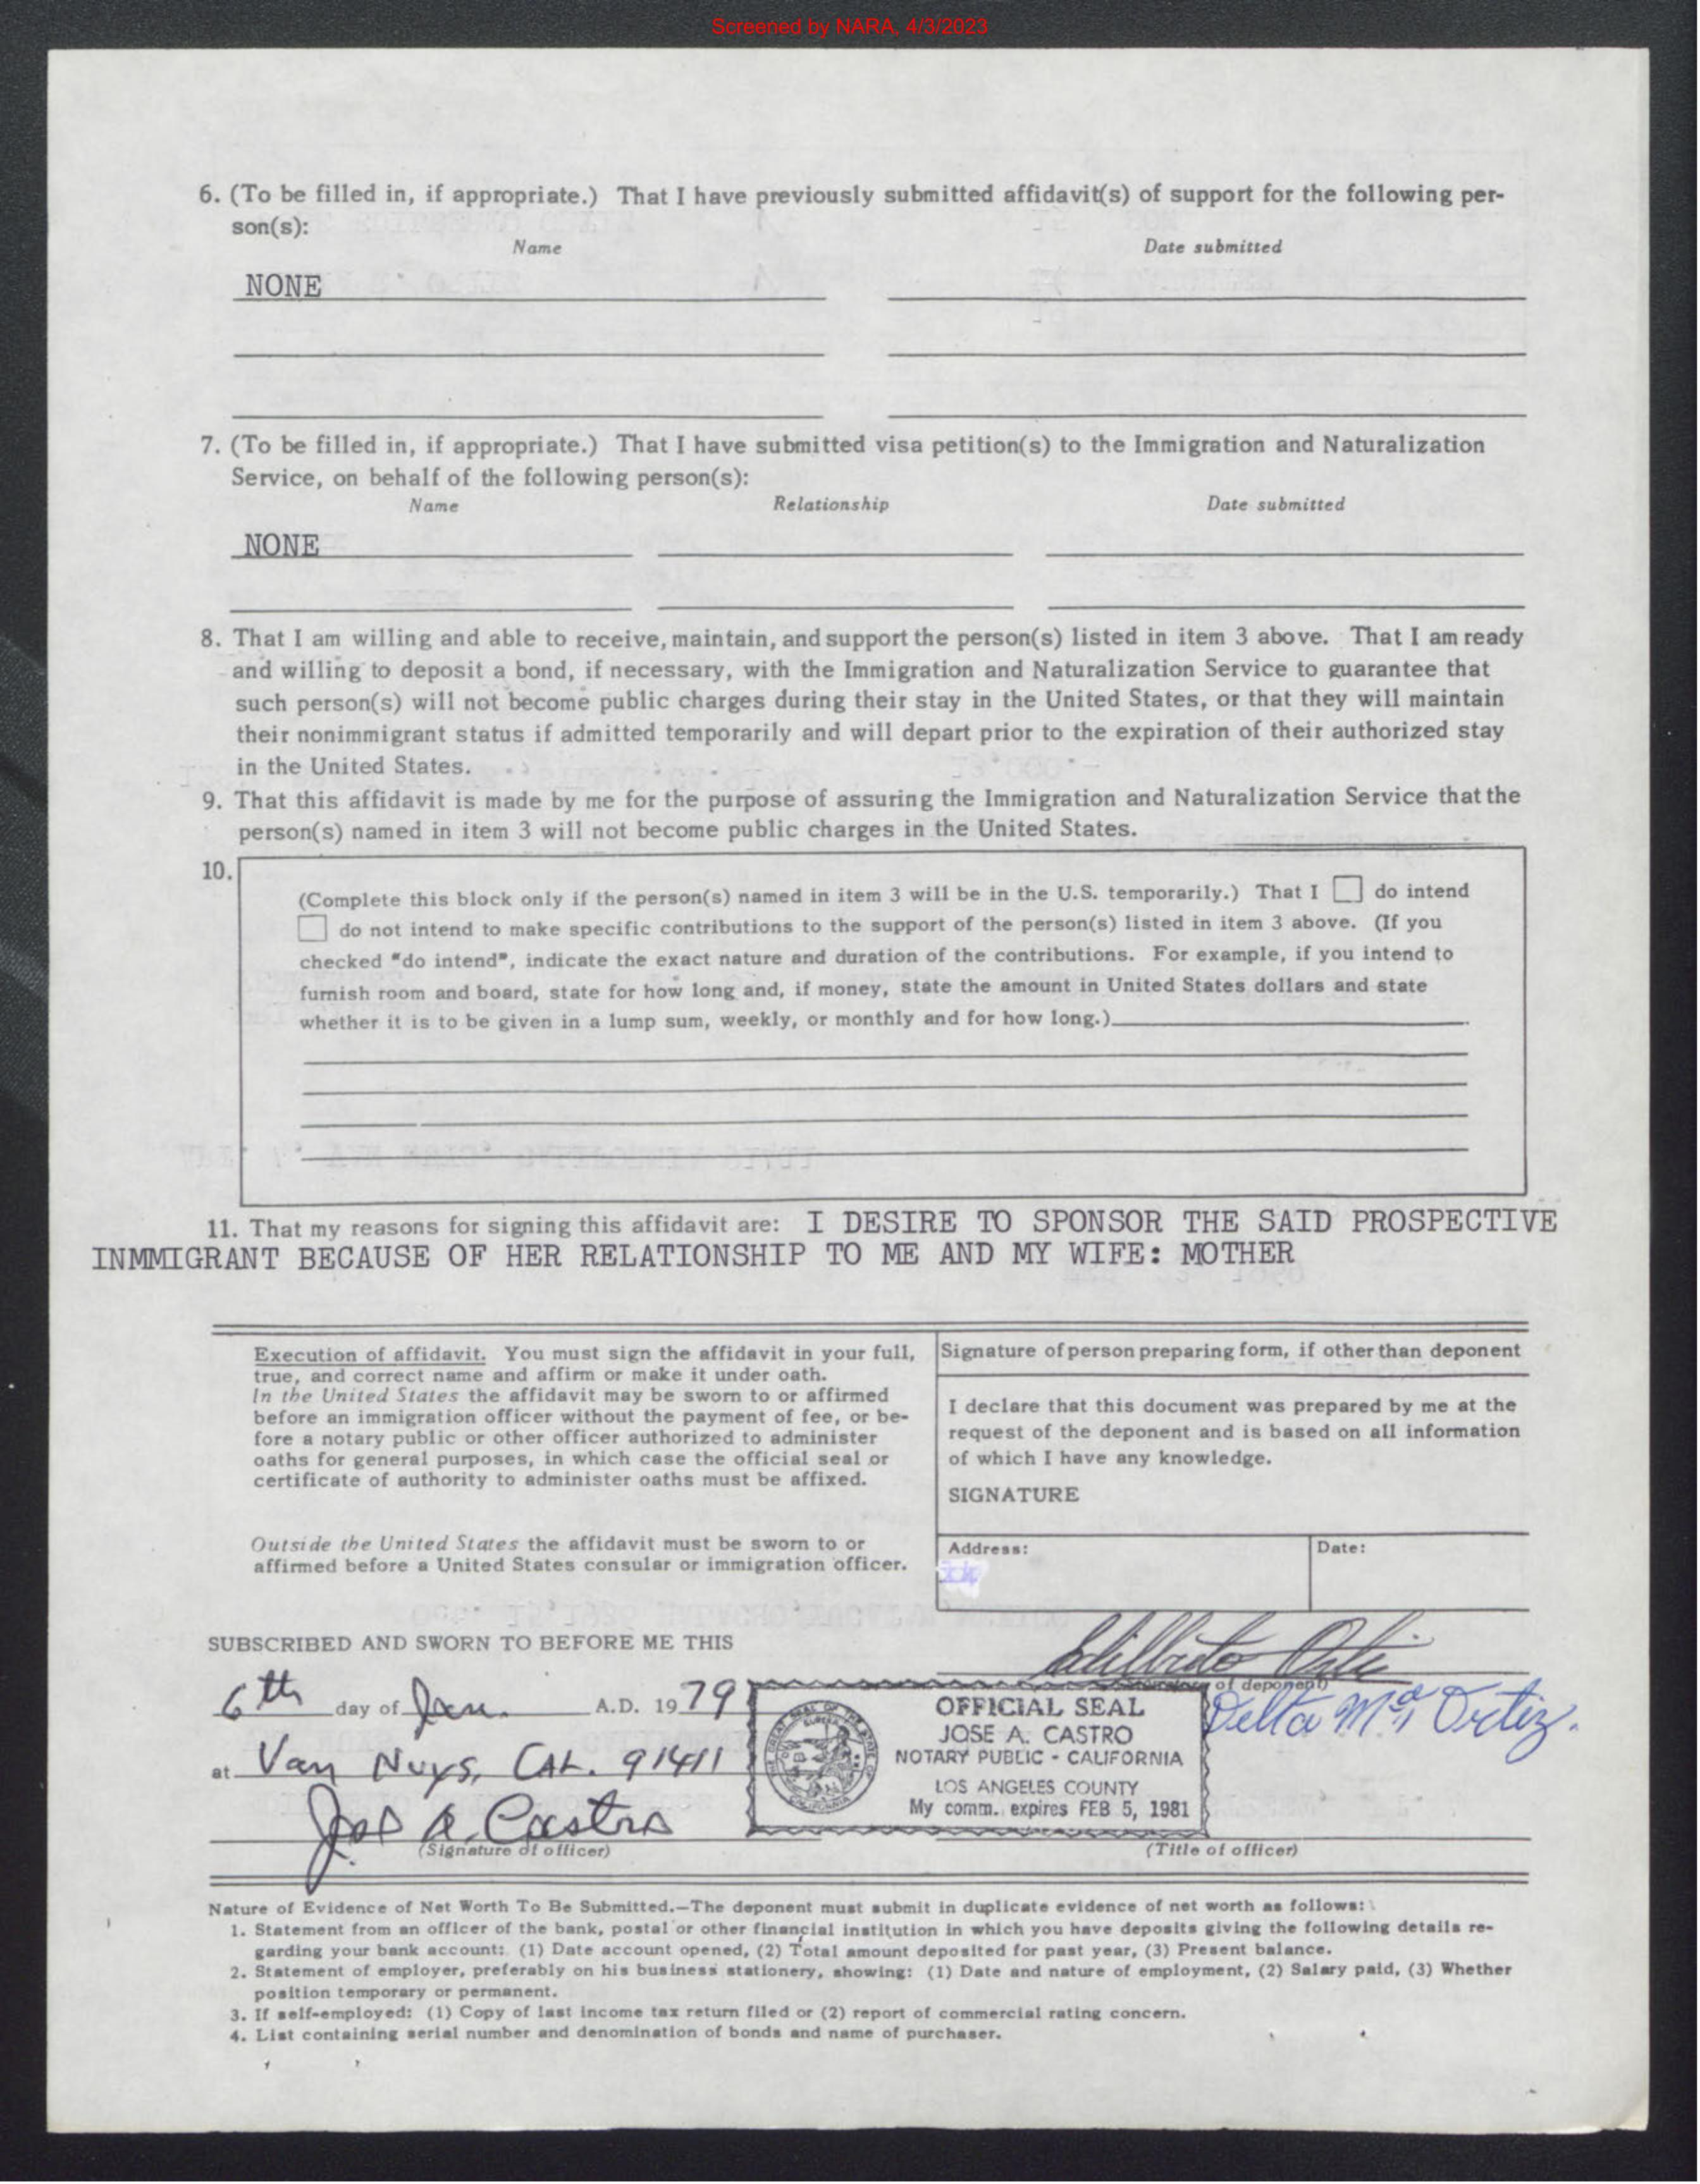 Screened by NARA, 4/3/2023
6. (To be filled in, if appropriate.) That I have previously submitted affidavit(s) of support for the following per-
son(s):
Name Date submitted
NONE
7. (To be filled in, if appropriate.) That I have submitted visa petition(s) to the Immigration and Naturalization
Service, on behalf of the following person(s):
Name Relationship Date submitted
NONE
8. That I am willing and able to receive, maintain, and support the person(s) listed in item 3 above. That I am ready
and willing to deposit a bond, if necessary, with the Immigration and Naturalization Service to guarantee that
such person(s) will not become public charges during their stay in the United States, or that they will maintain
their nonimmigrant status if admitted temporarily and will depart prior to the expiration of their authorized stay
in the United States.
9. That this affidavit is made by me for the purpose of assuring the Immigration and Naturalization Service that the
person(s) named in item 3 will not become public charges in the United States.
10.
(Complete this block only if the person(s) named in item 3 will be in the U.S. temporarily.) That I do intend
do not intend to make specific contributions to the support of the person(s) listed in item 3 above. (If you
checked "do intend", indicate the exact nature and duration of the contributions. For example, if you intend to
furnish room and board, state for how long and, if money, state the amount in United States dollars and state
whether it is to be given in a lump sum, weekly, or monthly and for how long.)
11. That my reasons for signing this affidavit are: I DESIRE TO SPONSOR THE SAID PROSPECTIVE
INMMIGRANT BECAUSE OF HER RELATIONSHIP TO ME AND MY WIFE: MOTHER
Execution of affidavit. You must sign the affidavit in your full,
true, and correct name and affirm or make it under oath.
In the United States the affidavit may be sworn to or affirmed
before an immigration officer without the payment of fee, or be-
fore a notary public or other officer authorized to administer
oaths for general purposes, in which case the official seal or
certificate of authority to administer oaths must be affixed.
Outside the United States the affidavit must be sworn to or
affirmed before a United States consular or immigration officer.
Signature of person preparing form, if other than deponent
I declare that this document was prepared by me at the
request of the deponent and is based on all information
of which I have any knowledge.
SIGNATURE
Address: Date:
SUBSCRIBED AND SWORN TO BEFORE ME THIS
6th day of Jan. A.D. 19 79
of deponent)
Delta Mª Ortiz.
at Van Nuys, CAL. 91411
OFFICIAL SEAL
JOSE A. CASTRO
NOTARY PUBLIC - CALIFORNIA
LOS ANGELES COUNTY
My comm. expires FEB 5, 1981
Jose A. Castro
(Signature of officer) (Title of officer)
Nature of Evidence of Net Worth To Be Submitted.—The deponent must submit in duplicate evidence of net worth as follows:
1. Statement from an officer of the bank, postal or other financial institution in which you have deposits giving the following details re-
garding your bank account: (1) Date account opened, (2) Total amount deposited for past year, (3) Present balance.
2. Statement of employer, preferably on his business stationery, showing: (1) Date and nature of employment, (2) Salary paid, (3) Whether
position temporary or permanent.
3. If self-employed: (1) Copy of last income tax return filed or (2) report of commercial rating concern.
4. List containing serial number and denomination of bonds and name of purchaser.